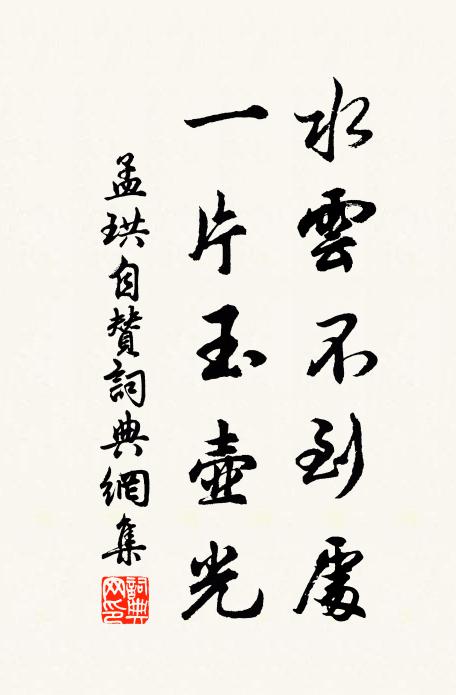 水雲不到處
一片玉壺光
孟珙自贊詞典網集
詞典網印